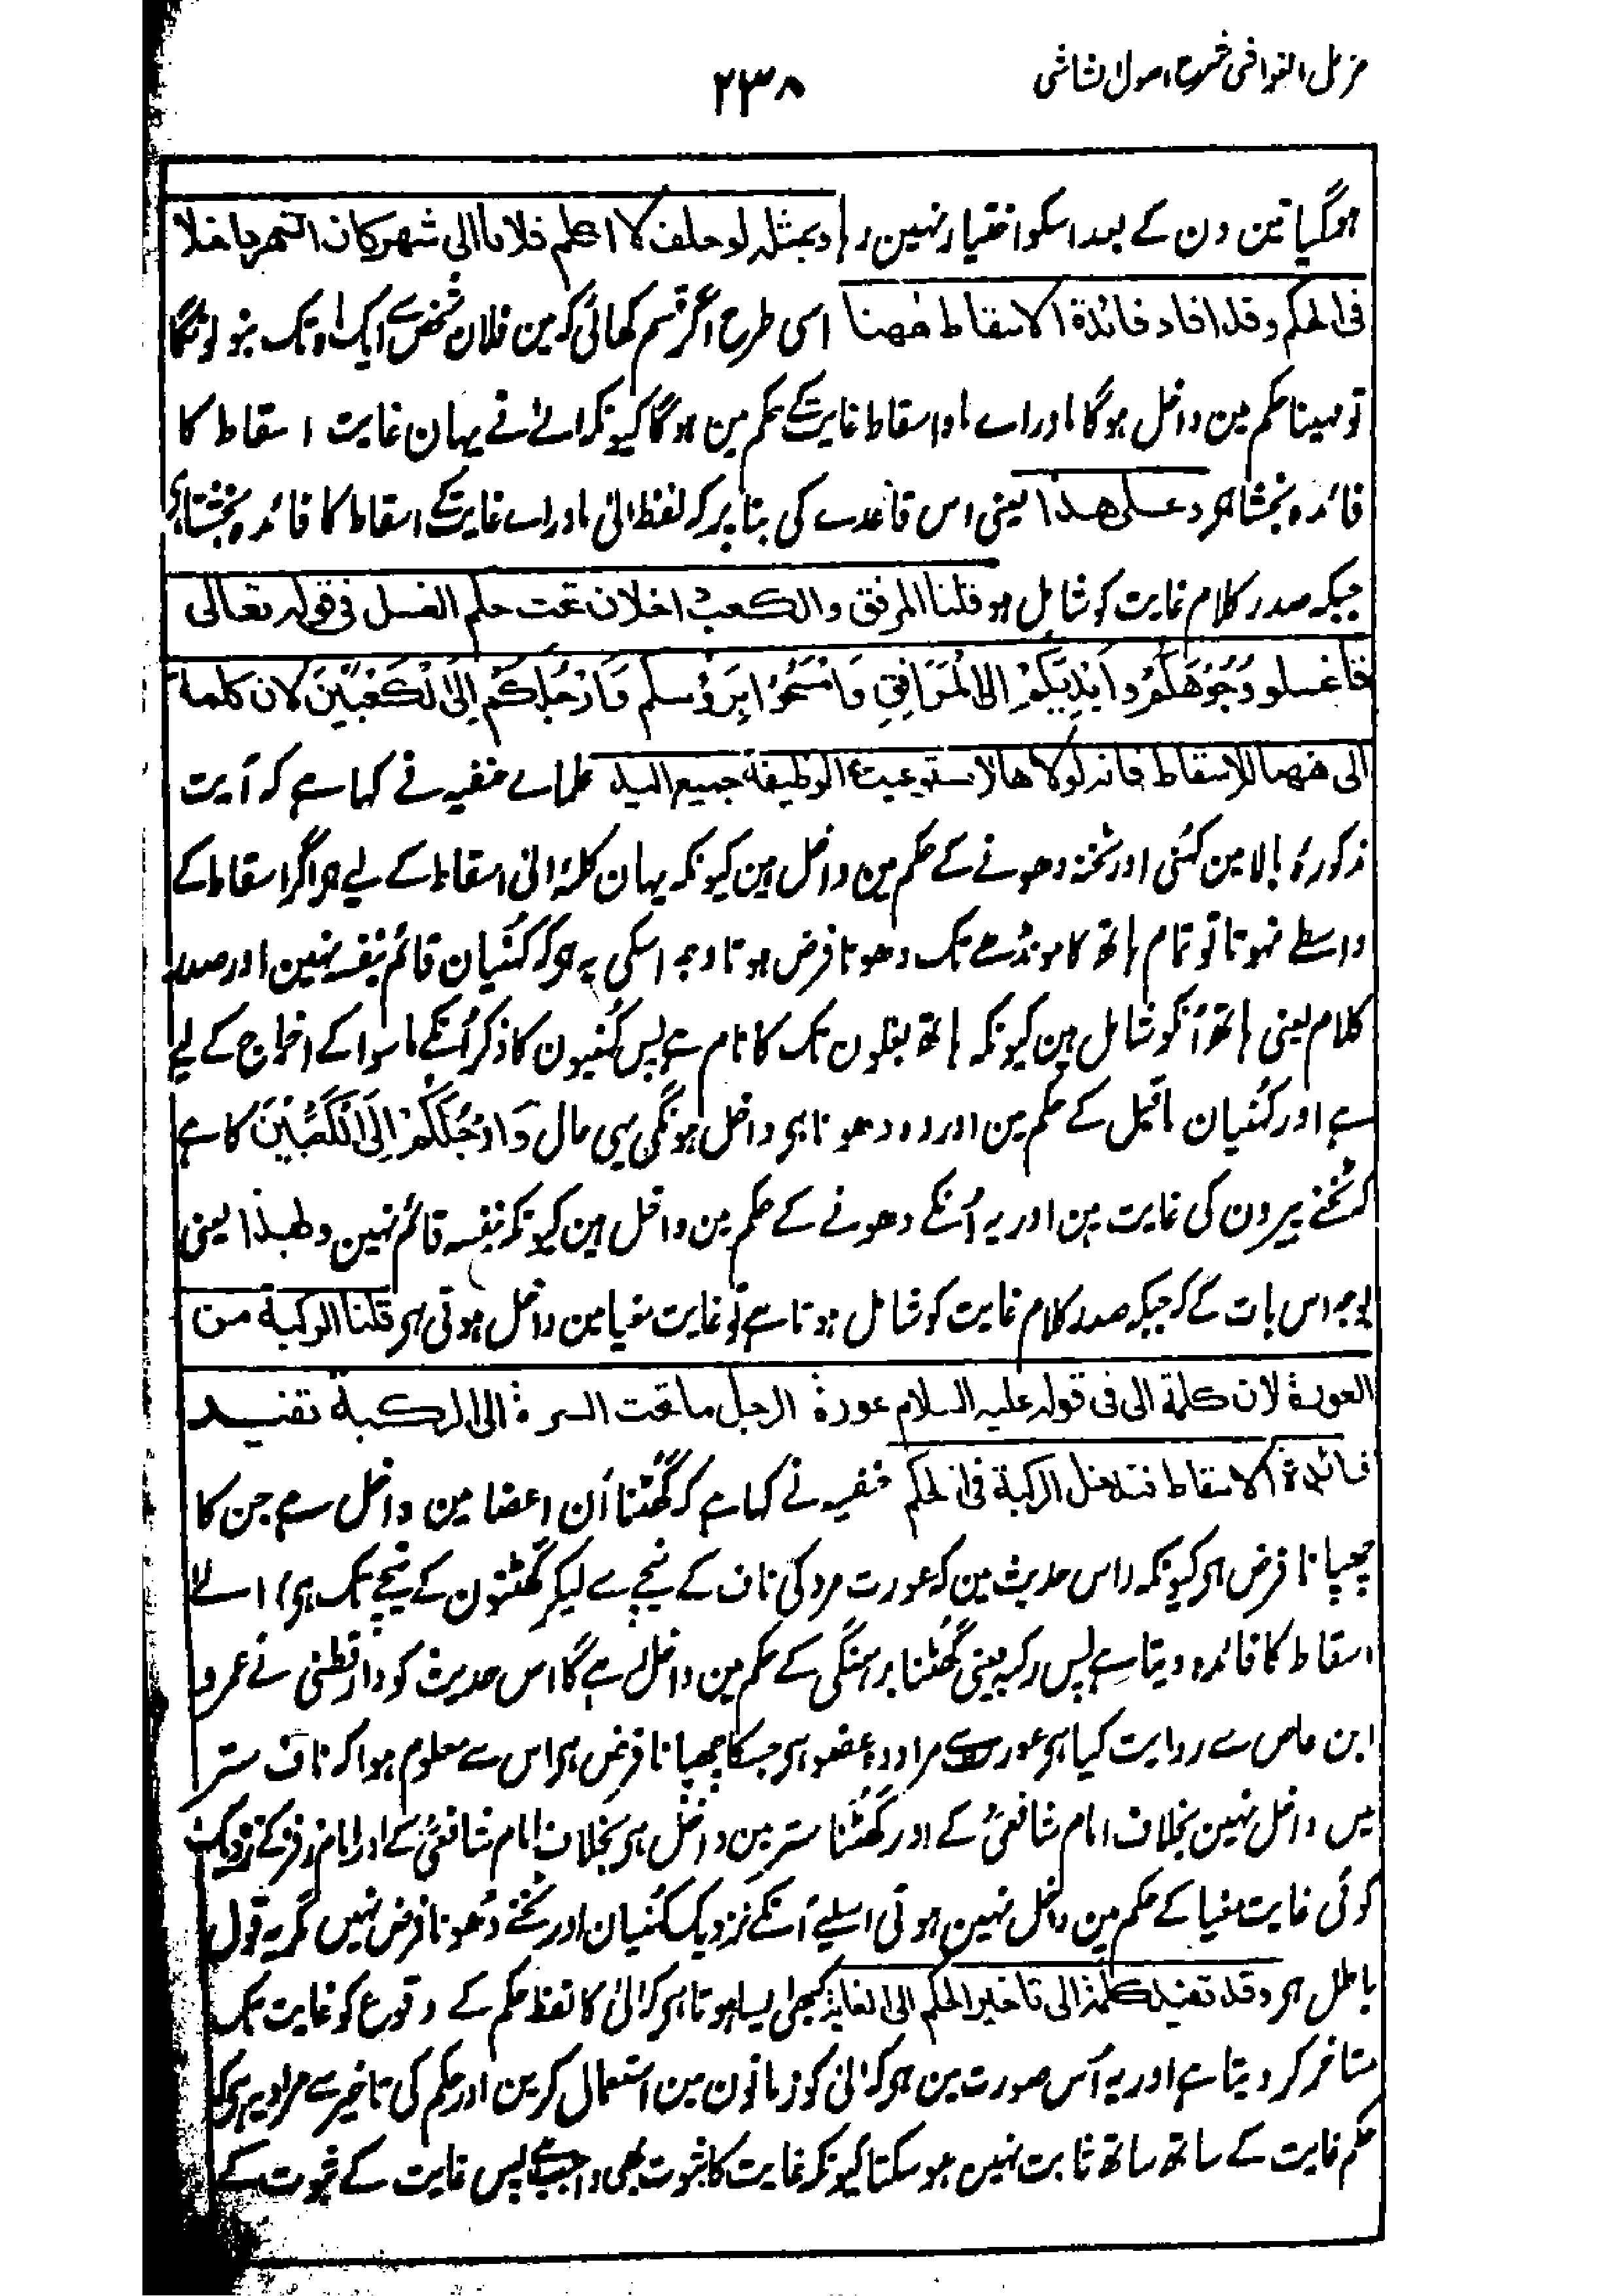 مزیل الغواشی شرح اصول الشاشی
۲۳۸
ہوگیا تین دن کے بعد اسکو اختیار نہین رہا وبمثلہ لو حلف لا اکلم فلانا الی شهر کان الشهر داخلا
فی الحکم وقد افاد فائدة الاسقاط ههنا اسی طرح اگر قسم کھائی کہ مین فلان شخص سے ایک ماہ تک نبولونگا
تو مہینا حکم مین داخل ہوگا ماوراے ماہ اسقاط غایت کے حکم مین ہوگا کیونکہ الےٰ نے یہان غایت اسقاط کا
فائدہ بخشا ہی وعلی هذا یعنی اس قاعدے کی بنا پر کہ لفظ الی ماوراے غایت کے اسقاط کا فائدہ بخشتا ہی
جبکہ صدر کلام غایت کو شامل ہو قلنا المرفق والکعب داخلان تحت حکم الغسل فی قوله تعالی
فاغسلو وُجُوْهَکُمْ وَاَیْدِیَکُمْ اِلَی الْمَرَافِقِ وَامْسَحُوْا بِرُؤُسِکم وَاَرْجُلَکُمْ اِلَی الْکَعْبَیْنَ لان کلمة
الی ههنا للاسقاط فانه لولاها لاستوعبت الوظیفة جمیع الید علماے حنفیہ نے کہا ہے کہ آیت
مذکورۂ بالا مین کہنی اور ٹخنہ دھونے کے حکم مین داخل ہین کیونکہ یہان کلمۂ الی اسقاط کے لیے ہو اگر اسقاط کے
واسطے نہوتا تو تمام ہاتھ کا مونڈھے تک دھونا فرض ہوتا وجہ اسکی یہ ہی کہ کہنیان قائم بنفسہ نہین اور صدر
کلام یعنی ہاتھ اُنکو شامل ہین کیونکہ ہاتھ بغلون تک کا نام ہے پس کہنیون کا ذکر اُنکے ماسوا کے اخراج کے لیے
ہے اور کہنیان ماقبل کے حکم مین اور وہ دھونا ہی داخل ہونگی یہی حال وَاَرْجُلَکُمْ اِلَی الْکَعْبَیْنَ کا ہے
کہ ٹخنے پیرون کی غایت ہین اور یہ اُنکے دھونے کے حکم مین داخل ہین کیونکہ بنفسہ قائم نہین ولهذا یعنی
بوجہ اس بات کے کہ جبکہ صدر کلام غایت کو شامل ہوتا ہے تو غایت مغیا مین داخل ہوتی ہی قلنا الرکبة من
العورة لان کلمة الی فی قوله علیه السلام عورة الرجل ما تحت السرة الی الرکبة تفید
فائدة الاسقاط فتدخل الرکبة فی الحکم حنفیہ نے کہا ہے کہ گھٹنا اُن اعضا مین داخل ہے جن کا
چھپانا فرض ہی کیونکہ (اس حدیث مین کہ عورت مرد کی ناف کے نیچے سے لیکر گھٹنون کے نیچے تک ہی) الےٰ
اسقاط کا فائدہ دیتا ہے پس رکبہ یعنی گھٹنا برہنگی کے حکم مین داخل رہے گا اس حدیث کو دارقطنی نے عمرو
ابن عاص سے روایت کیا ہی عورت سے مراد وہ عضو ہی جسکا چھپانا فرض ہی اس سے معلوم ہوا کہ ناف ستر
میں داخل نہین بخلاف امام شافعیؒ کے اور گھٹنا ستر مین داخل ہی بخلاف امام شافعیؒ کے اور امام زفر کے نزدیک
کوئی غایت مغیا کے حکم مین داخل نہین ہوتی اسلیے اُنکے نزدیک کہنیان اور ٹخنے دھونا فرض نہیں مگر یہ قول
باطل ہی وقد تفید کلمة الی تاخیر الحکم الی الغایة کبھی ایسا ہوتا ہی کہ الیٰ کا لفظ حکم کے وقوع کو غایت تک
متاخر کر دیتا ہے اور یہ اُس صورت مین ہی کہ الیٰ کو زمانون مین استعمال کرین اور حکم کی تاخیر سے مراد یہ ہی کہ
حکم غایت کے ساتھ ساتھ ثابت نہیں ہو سکتا کیونکہ غایت کا ثبوت بھی واجب ہے پس غایت کے ثبوت کے